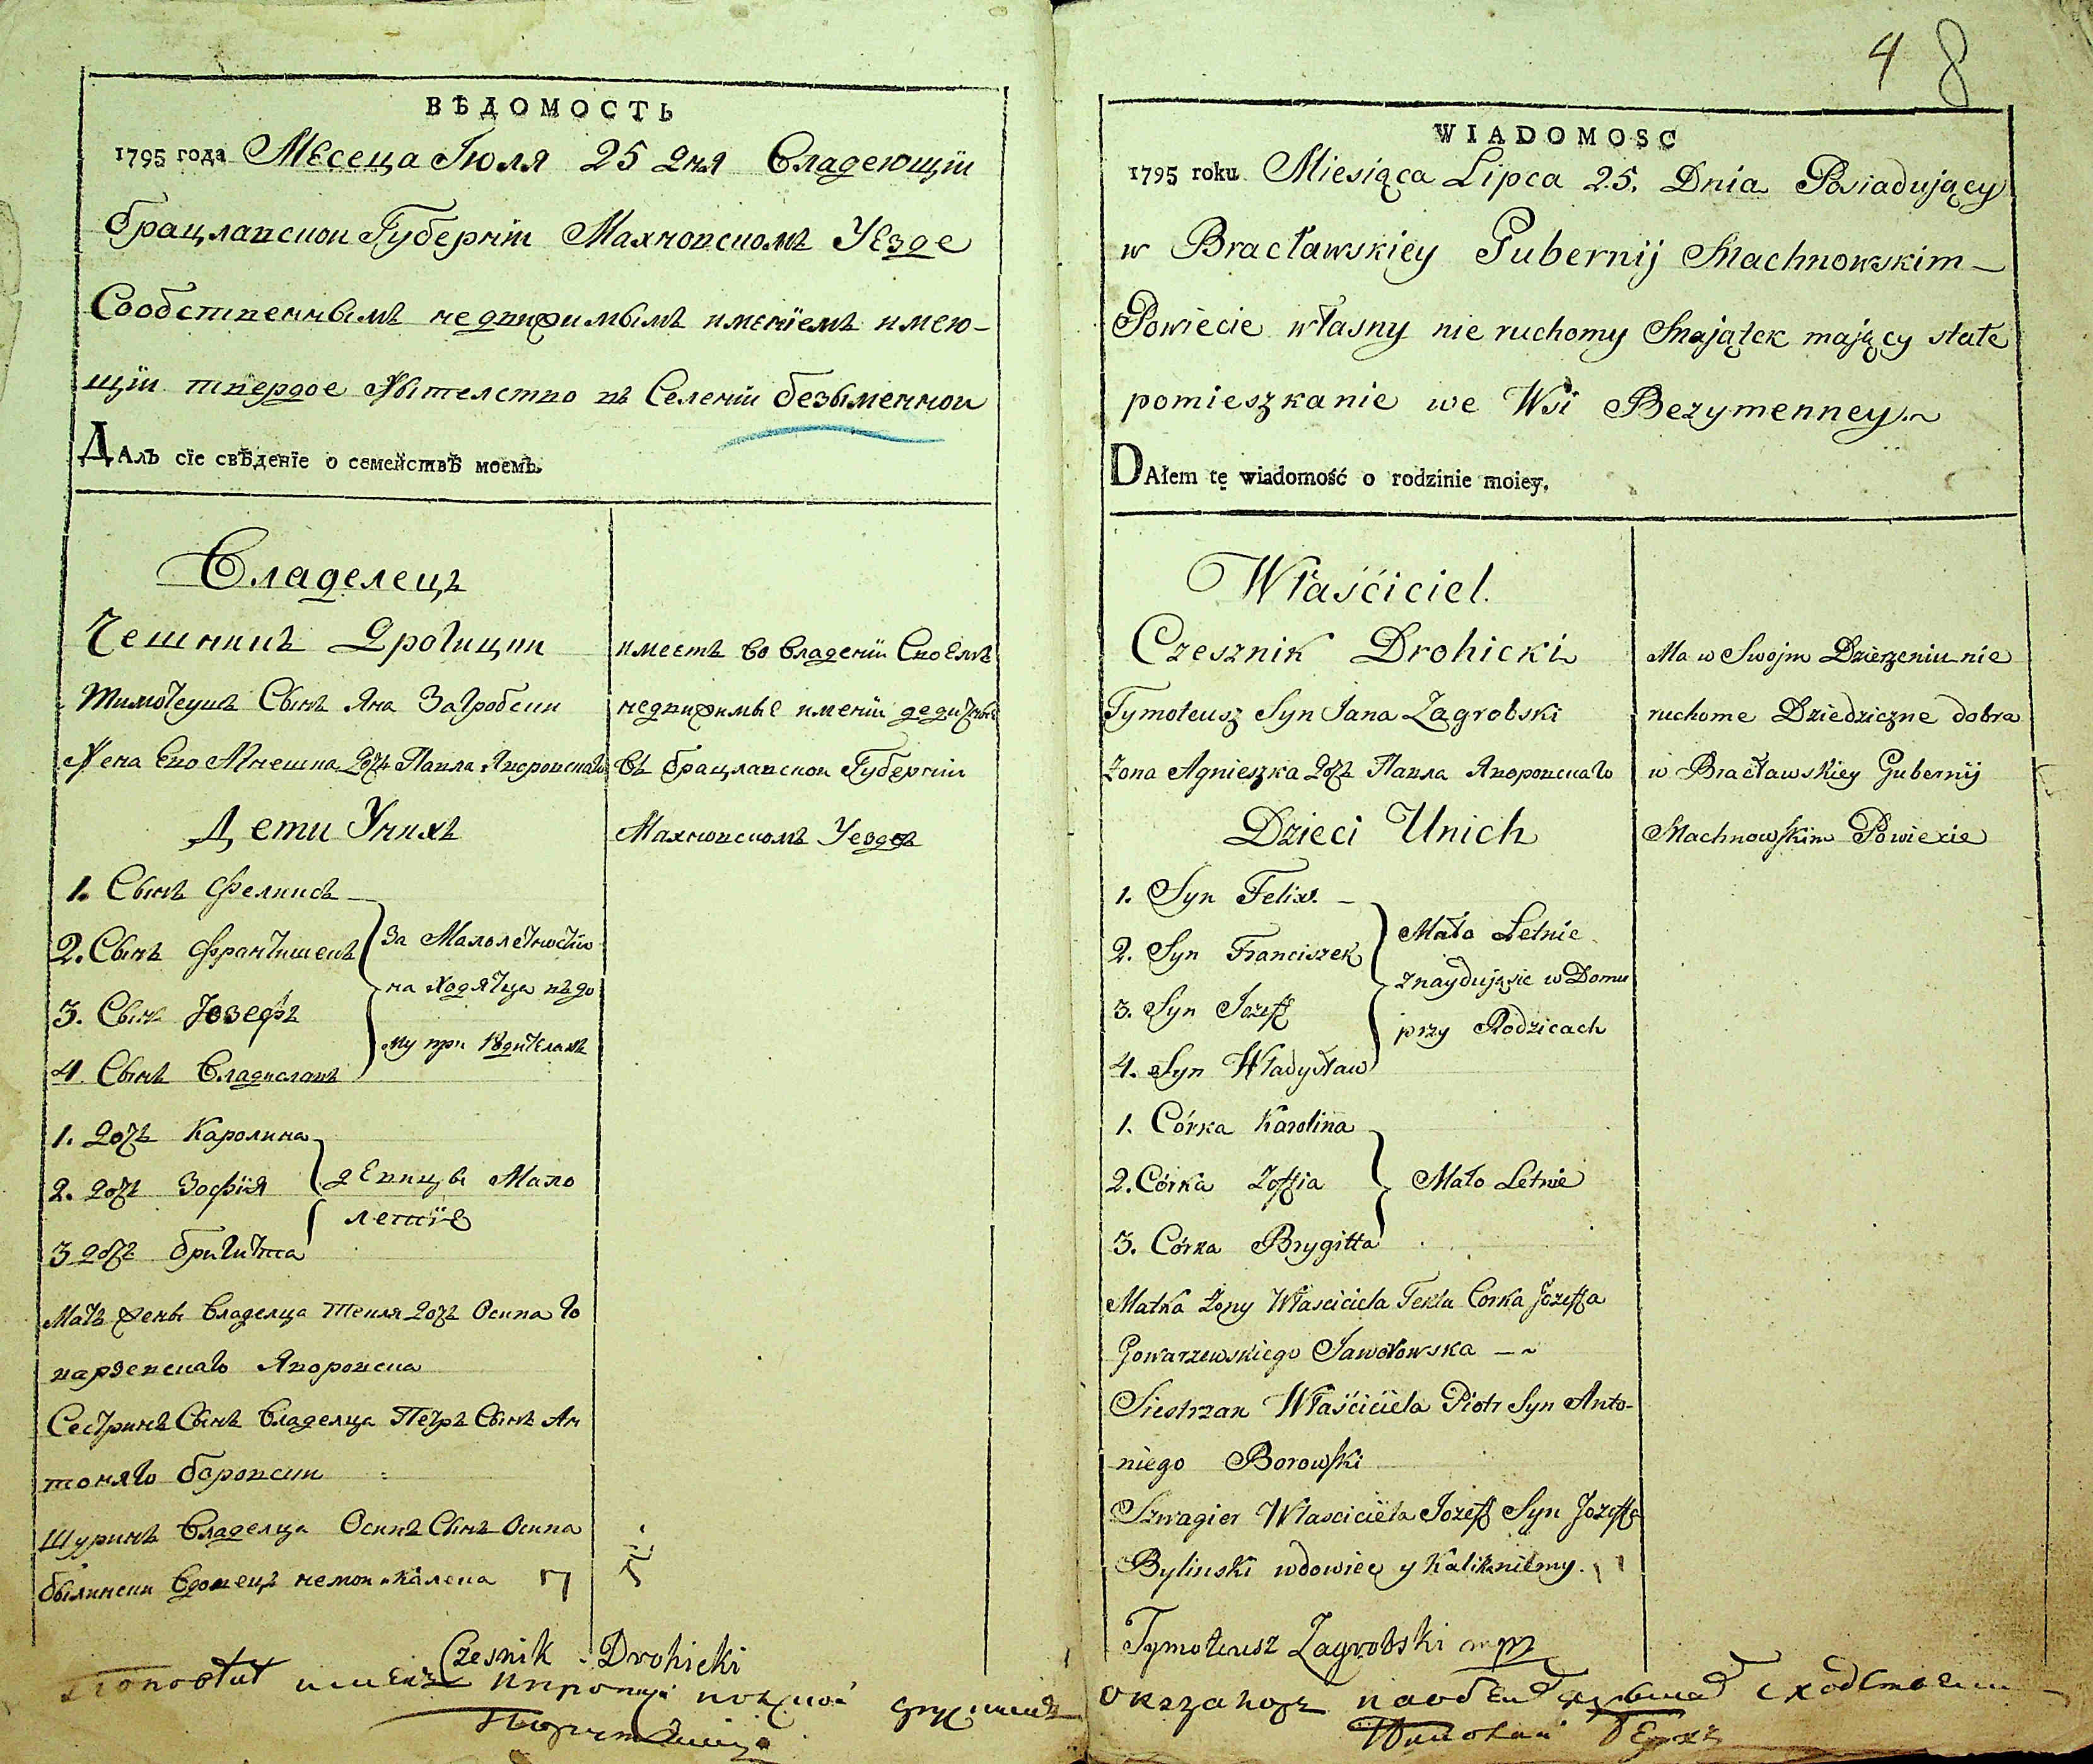 ВѢДОМОСТЬ
1795 года Месеца Июля 25 дня Владеющїи
Брацлавской Губернїи Махновскомъ Уезде
Сообственнымъ недвижимымъ именїемъ имею-
щїи твердое жытелство въ Селенїи Безыменной
ДАлЪ сїе свѣденїе о семействѣ моемЪ.
Владелецъ
Чешникъ Дрогицки
Тимотеушъ Сынъ Яна Загробски
Жена Ево Агнешка дочь Павла Яворовскаго
Дети Унихъ
1. Сынъ Феликсъ
2. Сынъ Францишекъ
3. Сынъ Іозефъ
4. Сынъ Владиславъ
За Малолетностїю
находятца въ до
му при Родителахъ
1. дочь Каролина
2. дочь Зофїя
3 дочь Бригитта
девицы Мало
летнїе
Мать жены Владелца Текля дочь Осипа Го
варзевскаго Яворовска
Сестринъ Сынъ Владелца Петръ Сынъ Ан
тоняго Боровски
Шуринъ Владелца Осипъ Сынъ Осипа
Былински Вдовецъ и калека
имеетъ во владенїи Своемъ
недвижимые именїи дедичные
въ Брацлавской Губернїи
Махновскомъ Уезде
Czesnik Drohicki
4 8
WIADOMOSC
1795 roku Miesiąca Lipca 25. Dnia Posiadujący
w Bracławskiey Gubernij Machnowskim
Powiecie własny nie ruchomy Majątek mający stałe
pomieszkanie we Wsi Bezymenney.
DAłem tę wiadomość o rodzinie moiey.
Właśćiciel.
Czesznik Drohicki
Tymoteusz Syn Jana Zagrobski
żona Agnieszka дочь Павла Яворовскаго
Dzieci Unich
1. Syn Felix.
2. Syn Franciszek
3. Syn Jozeff
4. Syn Władysław
Mało Letnie
znaydująsie w Domu
przy Rodzicach
1. Córka Karolina
2. Córka Zoffia
3. Córka Brygitta
Mało Letnie
Matka żony Własciciela Tekla Corka Jozeffa
Gowarzewskiego Jaworowska
Siestrzan Właśćiciela Piotr Syn Anto-
niego Borowski
Szwagier Własciciela Jozeff Syn Jozeffa
Bylinski wdowiec y Kalika
Ma w Swojm Dzierzeniu nie
ruchome Dziedziczne dobra
w Bracławskiey Gubernij
Machnowskim Powiecie
Tymoteusz Zagrobski mpp